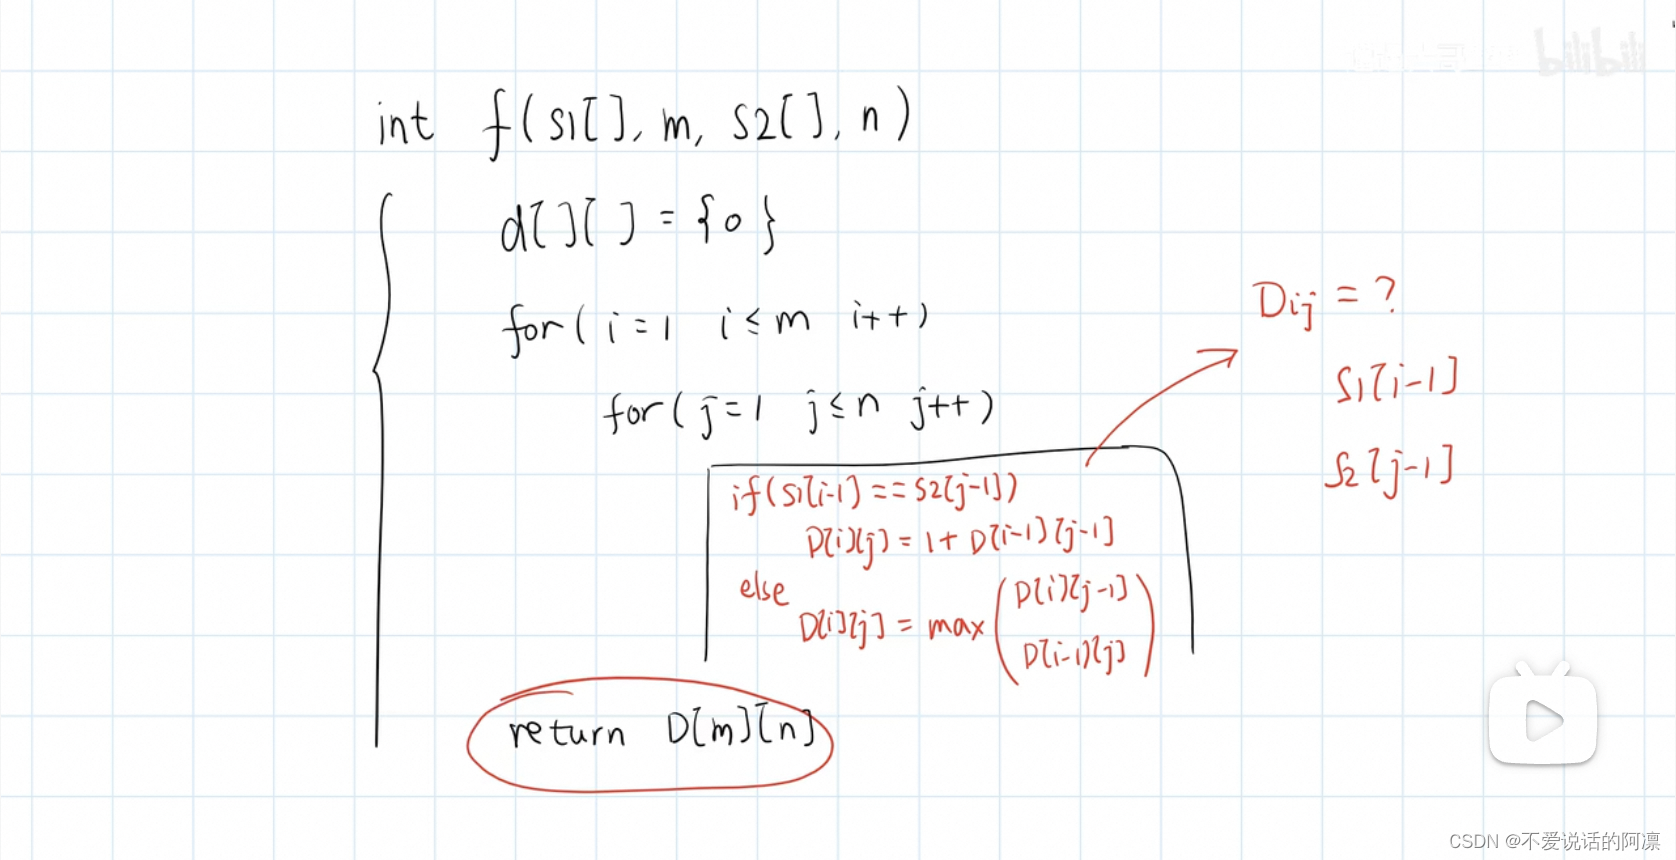 bilibili
int f(S1[], m, S2[], n)
d[][] = {0}
for(i=1 i≤m i++)
for(j=1 j≤n j++)
if(S1[i-1]==S2[j-1])
D[i][j] = 1+D[i-1][j-1]
else
D[i][j] = max(D[i][j-1]
D[i-1][j])
return D[m][n]
Dij = ?
S1[i-1]
S2[j-1]
CSDN @不爱说话的阿凛